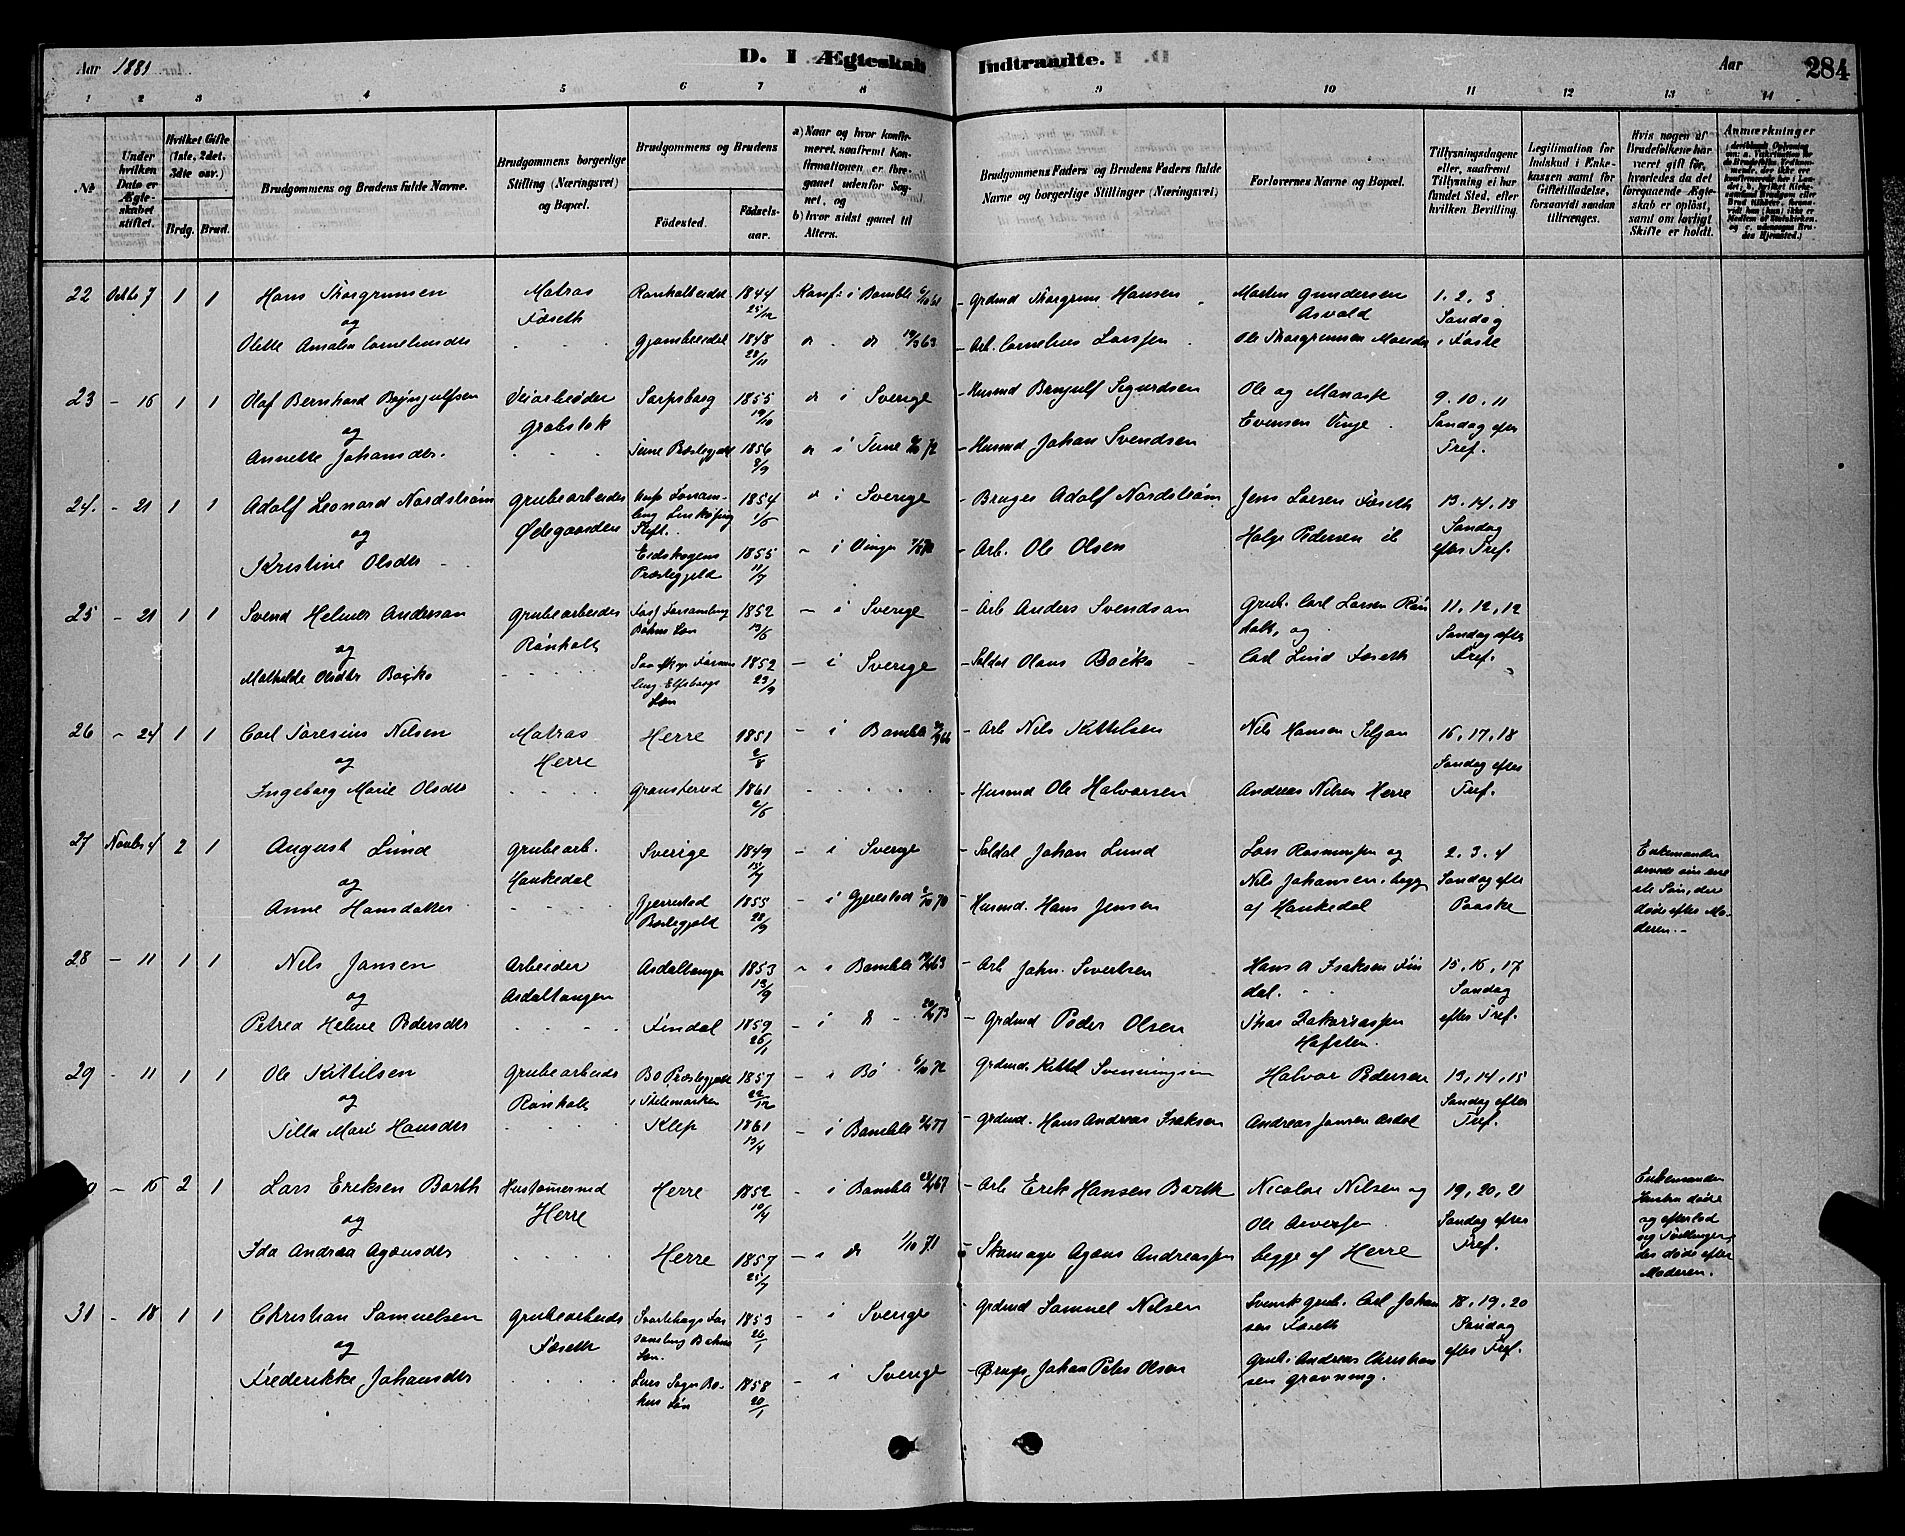 Aar 1881
D. I Ægteskab Indtraadte.
Aar 284
1 2 3 4 5 6 7 8 9 10 11 12 13 14
№
Under hvilken Dato er Ægteskabet stiftet.
Hvilket Gifte (1ste, 2det, 3die osv.)
Brdg. Brud.
Brudgommens og Brudens fulde Navne.
Brudgommens borgerlige Stilling (Næringsvei) og Bopæl.
Brudgommens og Brudens
Fødested.
Fødselsaar.
a) Naar og hvor konfirmeret, saafremt Konfirmationen er foregaaet udenfor Sognet, og
b) hvor sidst gaaet til Alters.
Brudgommens Faders og Brudens Faders fulde Navne og borgerlige Stillinger (Næringsvei)
Forlovernes Navne og Bopæl.
Tillysningsdagene eller, saafremt Tillysning ei har fundet Sted, efter hvilken Bevilling.
Legitimation for Indskud i Enkekassen samt for Giftetilladelse, forsaavidt saadan tiltrænges.
Hvis nogen af Brudefolkene har været gift før, hvorledes da det foregaaende Ægteskab er opløst, samt om lovligt Skifte er holdt.
Anmærkninger
22 Octbr 7 1 1 Hans Thorgrimsen Matros Rønholteidet 1844 25/12 Konf: i Bamble 6/10 61 - Grdmd Thorgrim Hansen Morten Gundersen Asvald 1. 2. 3.
og Foseth Søndag
Olette Amalia Cornelinsdtr Gjømleeidet 1848 28/11 do - do 63 - Arb. Cornelius Larssen Ole Thorgrimsen i Faste
23 - 16 1 1 Olaf Bernhard Brynjulfsen Veiarbeider Sarpsborg 1855 19/10 do i Sverige - Husmd Brynjulf Sigurdsen Ole og Manasse 9. 10. 11
og Grobstok Evensen Vinje Søndag efter
Annette Johansdtr. Tune Præstegjeld 1856 8/9 do i Tune 72 - Husmd Johan Svendsen Tref.
24. - 21 1 1 Adolf Leonard Nordstrøm Grubearbeider Forsamling Linköping Stift. 1854 1/6 do i Sverige - Bruger Adolf Nordstrøm Jens Larsen Foseth 13. 14. 15
og Ødegaarden Søndag
Kristine Olsdtr Eidskogens Præstegjeld 1855 11/7 - i Vinger - Arb. Ole Olsen Helge Pedersen ib efter Tref.
25 - 21 1 1 Svend Helmer Anderson Grubearbeider Forsamling Bohus Len 1852 13/6 - i Sverige - Arb Anders Svendsan Grub. Carl Larsen Røn 11, 12, 12
og Rønholt holt, og Søndag efter
Mathilde Olsdtr Bocko Elfsborgs Len 1852 23/9 - i Sverige - Soldat Olaus Bocko - Carl Lind Foseth Tref.
26 - 24 1 1 Carl Toresius Nilsen Matros Herre 1851 2/8 - i Bamble 66 - Arb Nils Kittilsen Nils Hansen Seljan 16, 17, 18
og Herre Søndag efter
Ingeborg Marie Olsdtr Gransterud 1861 2/6 - Husmd Ole Halvorsen Andreas Nilsen Herre Tref.
27 Novbr 4 2 1 August Lind Grubearb. Sverige 1849 - i Sverige - Soldat Johan Lund Lars Rasmussen og 2. 3. 4 Enkemanden arvede sin eneste Søn, der døde efter Moderen. -
og Hankedal Nils Johansen, begge Søndag efter
Anne Hansdatter Gjerrestad Præstegjeld 1855 28/9 - i Gjerestad 70 - Husmd. Hans Jensen af Hankedal Paaske
28 - 11 1 1 Nils Jansen Arbeider Asdaltangen 1853 13/9 - i Bamble 63 - Arb John Sivertsen Hans A Isaksen Fin 15, 16, 17
og Asdaltangen dal. Søndag
Petrea Helene Pedersdtr Findal 1859 26/1 - i do - 73 - Grdmd Peder Olsen Thor Zakariassen Hafsten. efter Tref.
29 - 11 1 1 Ole Kittilsen Grubearbeider Bø Præstegjeld i Thelemarken 1857 22/12 - i Bø 6/10 72 - Grdmd. Kittel Svenningsen Halvor Pedersen 13, 14, 15
og Rønholt Søndag efter
Tilla Mari Hansdtr Klep 1861 13/4 - i Bamble 77 - Grdmd. Hans Andreas Isaksen Andreas Jansen Asdal Tref.
- 16 2 1 Lars Eriksen Barth Herre 1852 10/4 - i Bamble 67 - Arb Erik Hansen Barth Nicolai Nilsen og 19, 20, 21 Enkemanden Hustru døde og efterlod sig Tvillinger, der døde efter Moderen.
og Herre Ole Søndag efter
Ida Andrea Agensdtr Herre 1857 25/7 - i do 1/10 71 - Skomager Agens Andreassen begge af Herre Tref.
31 - 18 1 1 Christian Samuelsen Grubearbeider Svarteborgs Forsamling Bohus Len. 1853 26/1 - i Sverige - Grdmd Samuel Nilsen Svensk Grub. Carl Johan 18, 19, 20
og Foseth sen Foseth Søndag
Frederikke Johansdtr Lurs Sogn Bohus Len 1858 20/1 - i Sverige - Brugs Johan Peter Olsen Grub. Andreas Christian efter Tref.
sen Gravning.